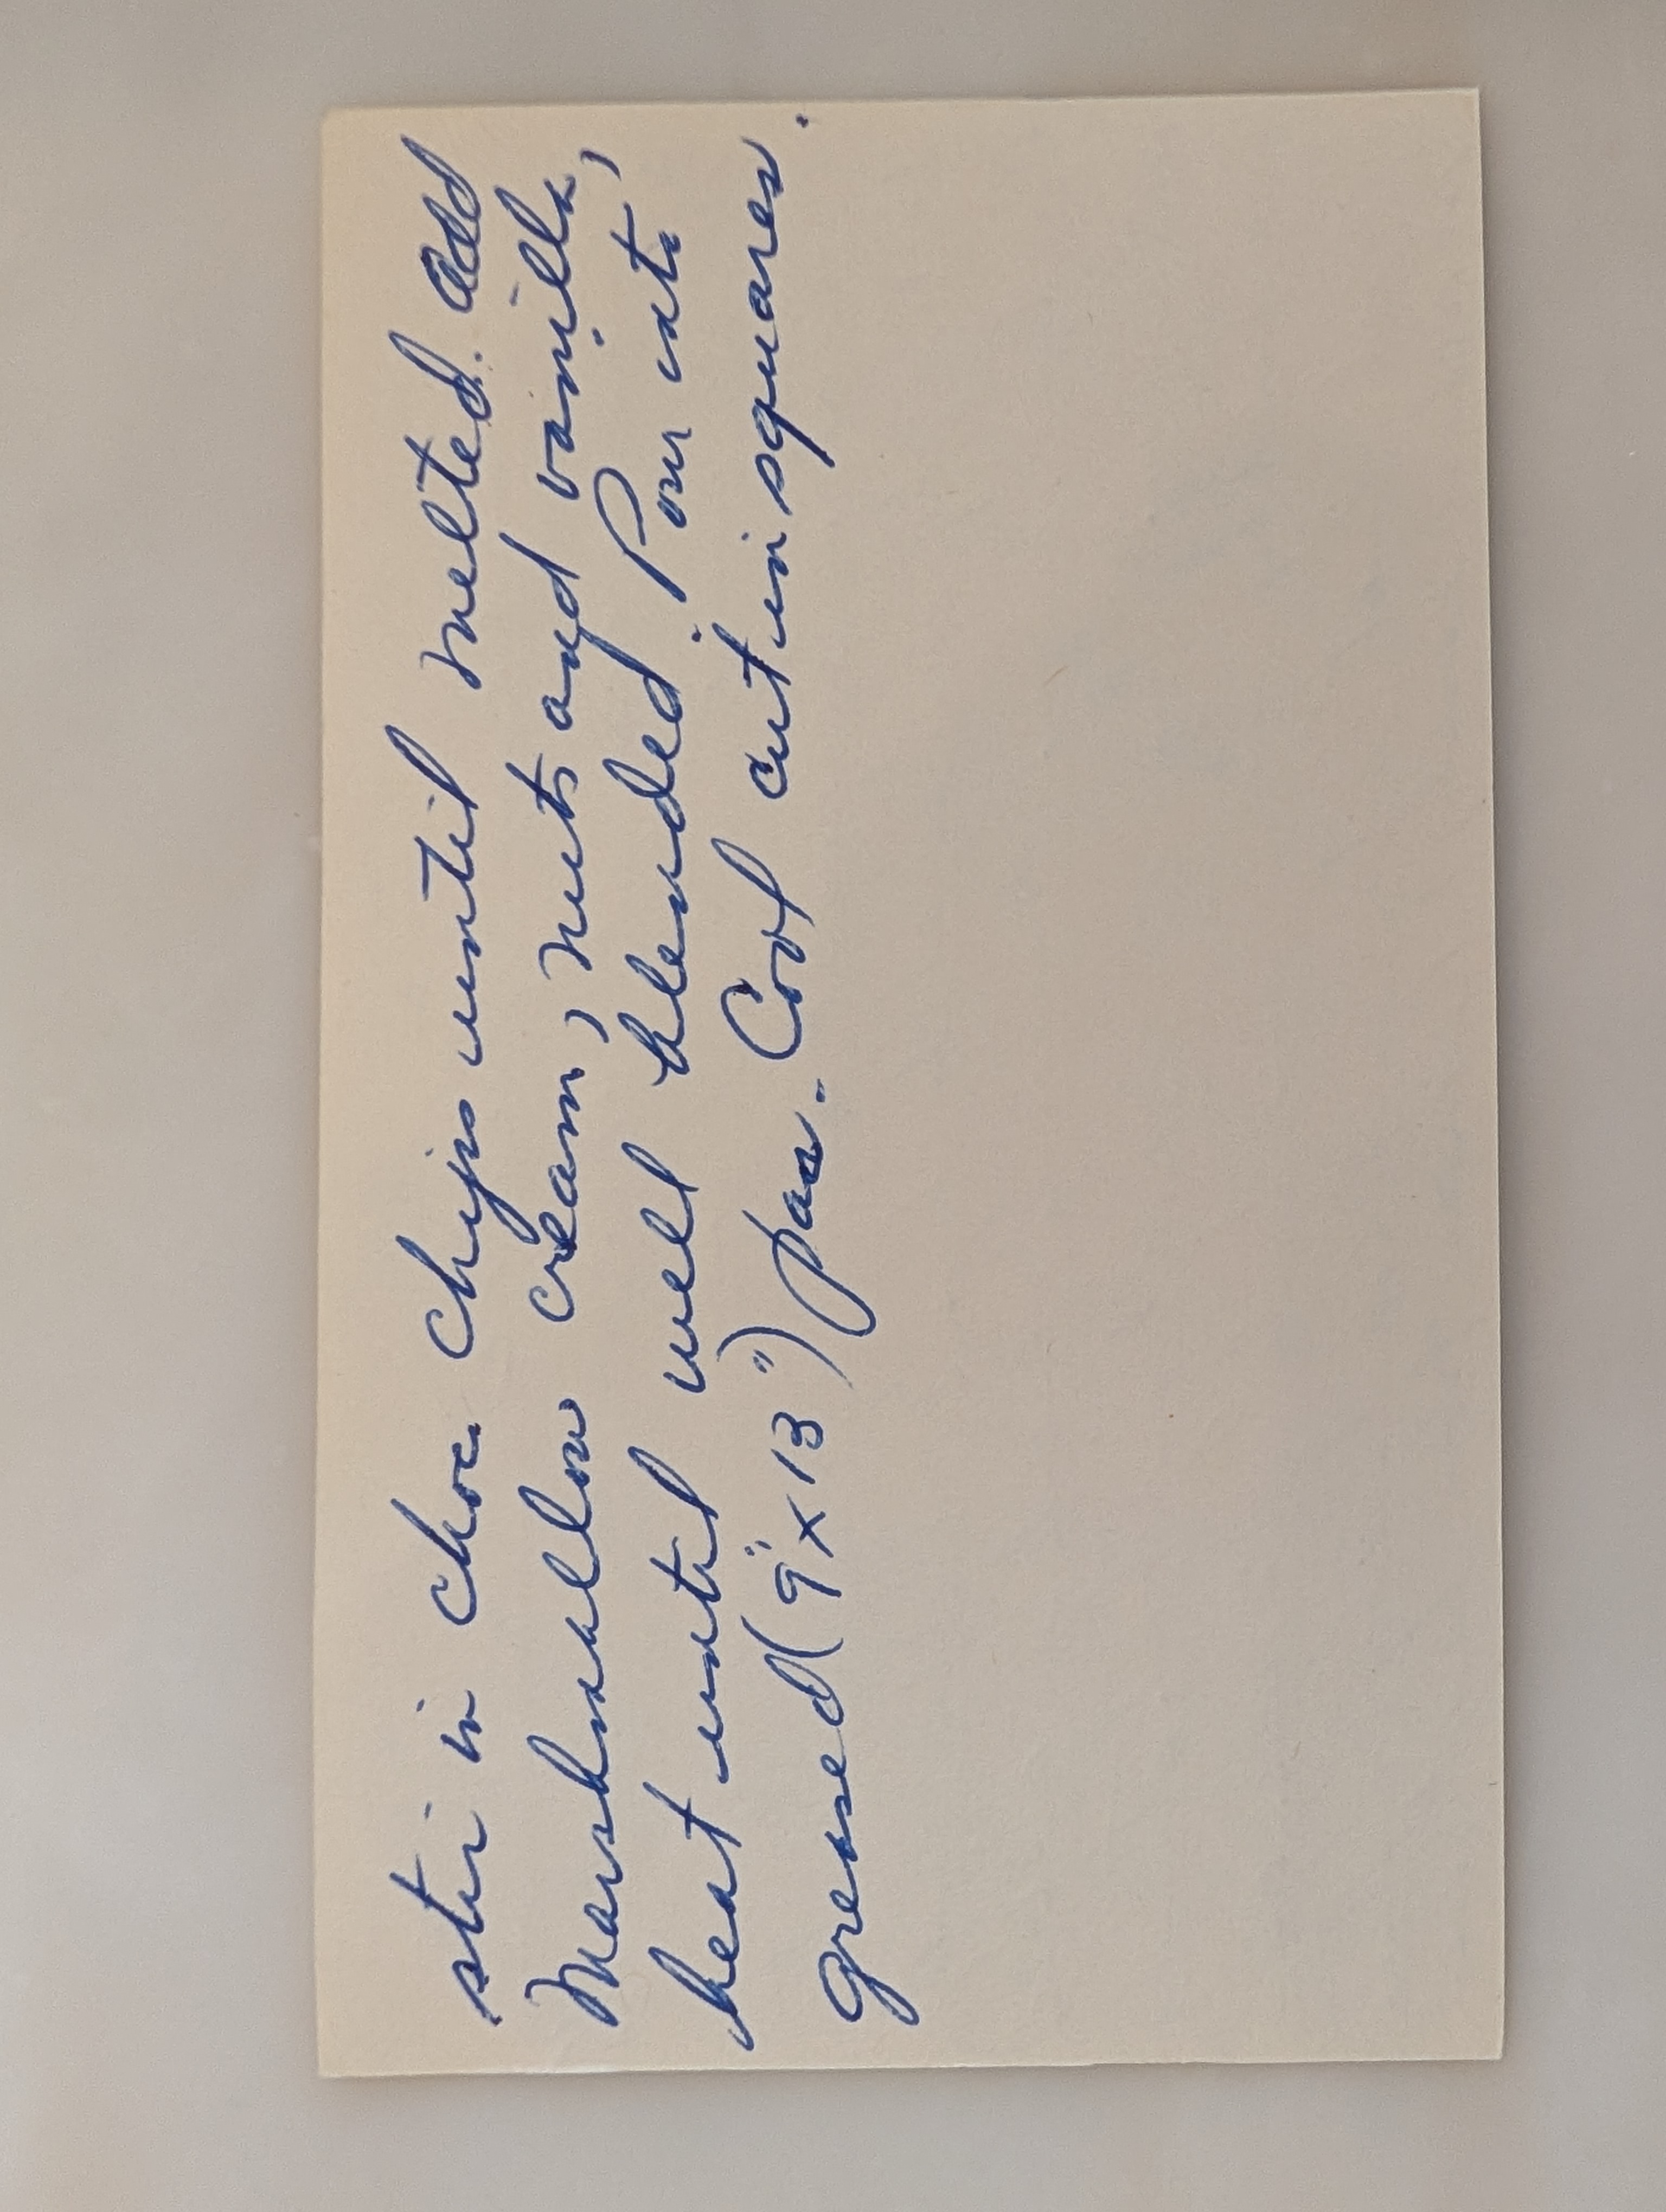 stir in choc chips until melted. Add
Marshmallow cream, nuts and vanilla,
beat until well blended. Pour into
greased (9" x 13") pan. Cool cut in squares.